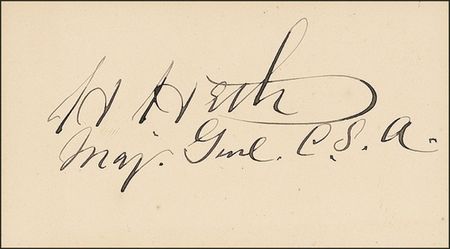 H Heth
Maj. Genl. C.S.A.